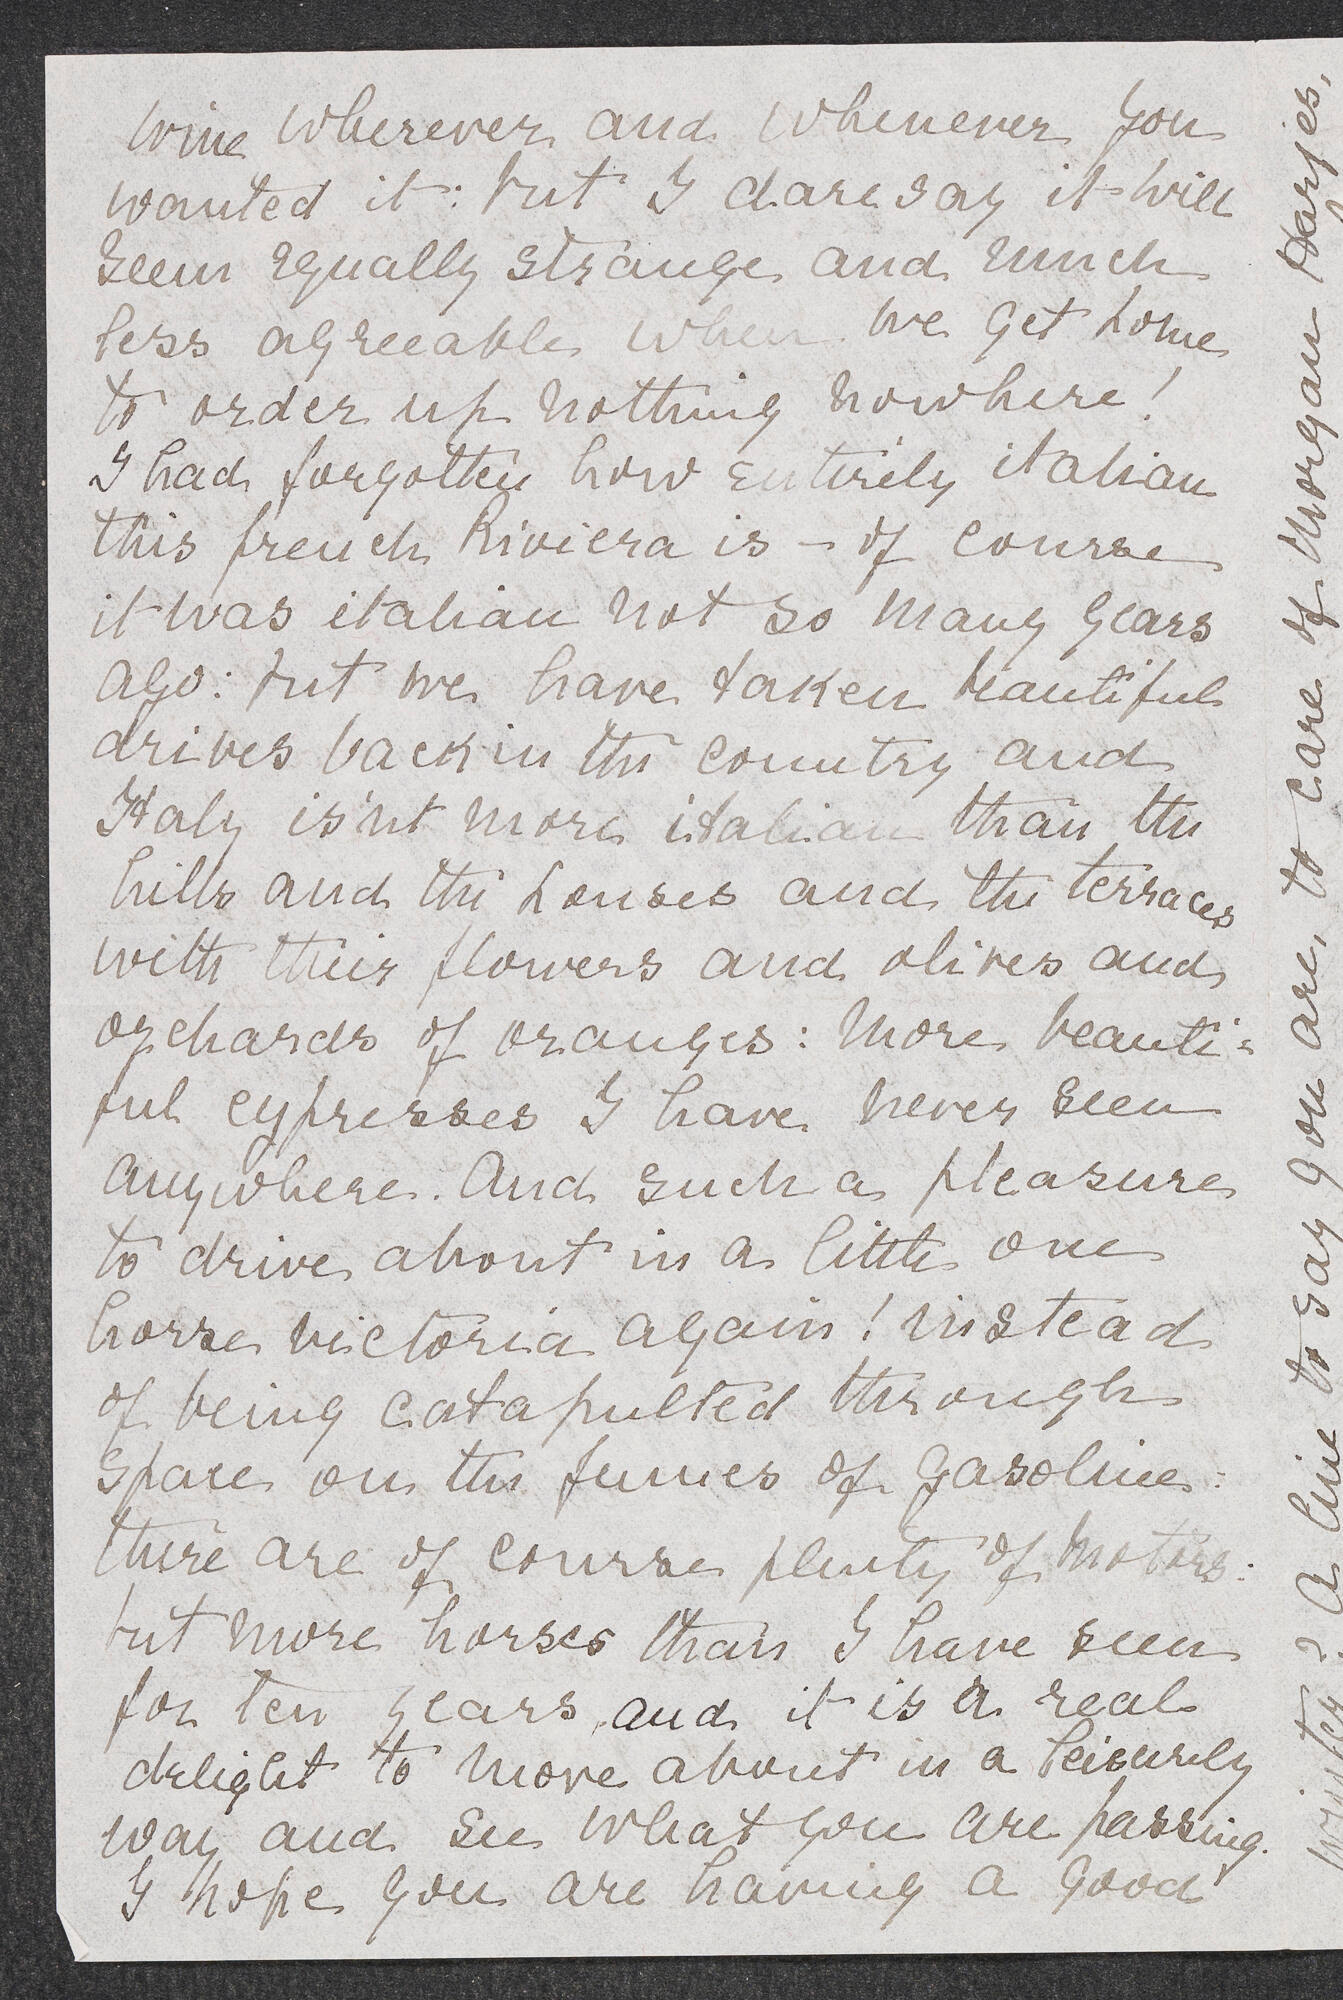 wine wherever and whenever you
wanted it: but I daresay it will
seem equally strange and much
less agreeable when we get home
to order up nothing nowhere!
I had forgotten how entirely italian
this french Riviera is – of course
it was italian not so many years
ago: but we have taken beautiful
drives back in the country and
Italy is'nt more italian than the
hills and the houses and the terraces
with their flowers and olives and
orchards of oranges: more beauti=
ful cypresses I have never seen
anywhere. And such a pleasure
to drive about in a little one
horse victoria again! instead
of being catapulted through
space on the fumes of gasoline:
there are of course plenty of motors:
but more horses than I have seen
for ten years and it is a real
delight to move about in a leisurely
way and see what you are passing.
I hope you are having a good
winter? A line to say you are, to care of Morgan Harjes,